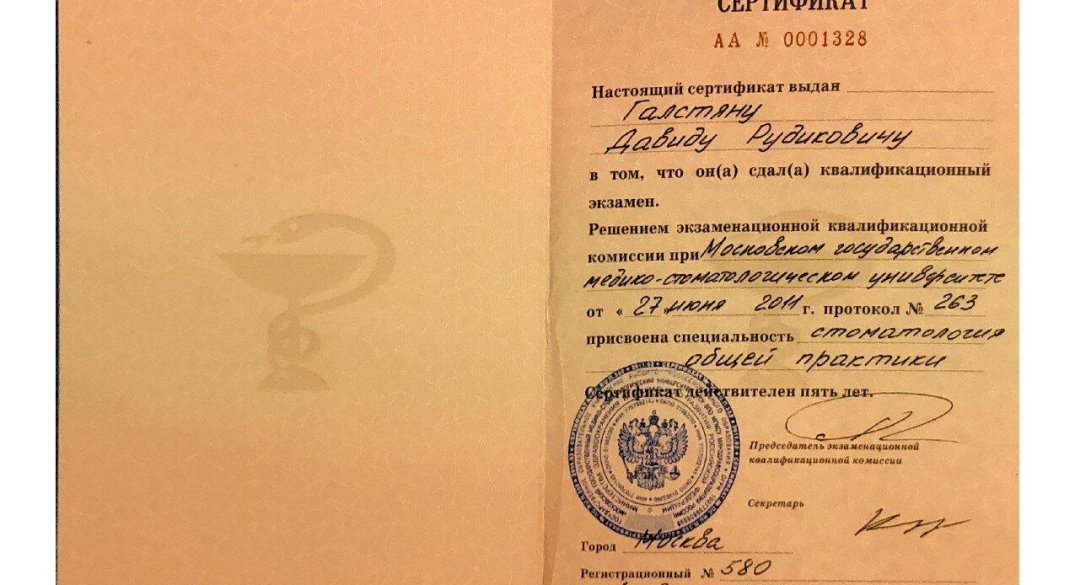 СЕРТИФИКАТ
АА № 0001328
Настоящий сертификат выдан
Галстяну
Давиду Рудиковичу
в том, что он(а) сдал(а) квалификационный
экзамен.
Решением экзаменационной квалификационной
комиссии при Московском государственном
медико-стоматологическом университете
от « 27 » июня 2011 г. протокол № 263
присвоена специальность стоматология
общей практики
Сертификат действителен пять лет.
Председатель экзаменационной
квалификационной комиссии
Секретарь
Город Москва
Регистрационный № 580